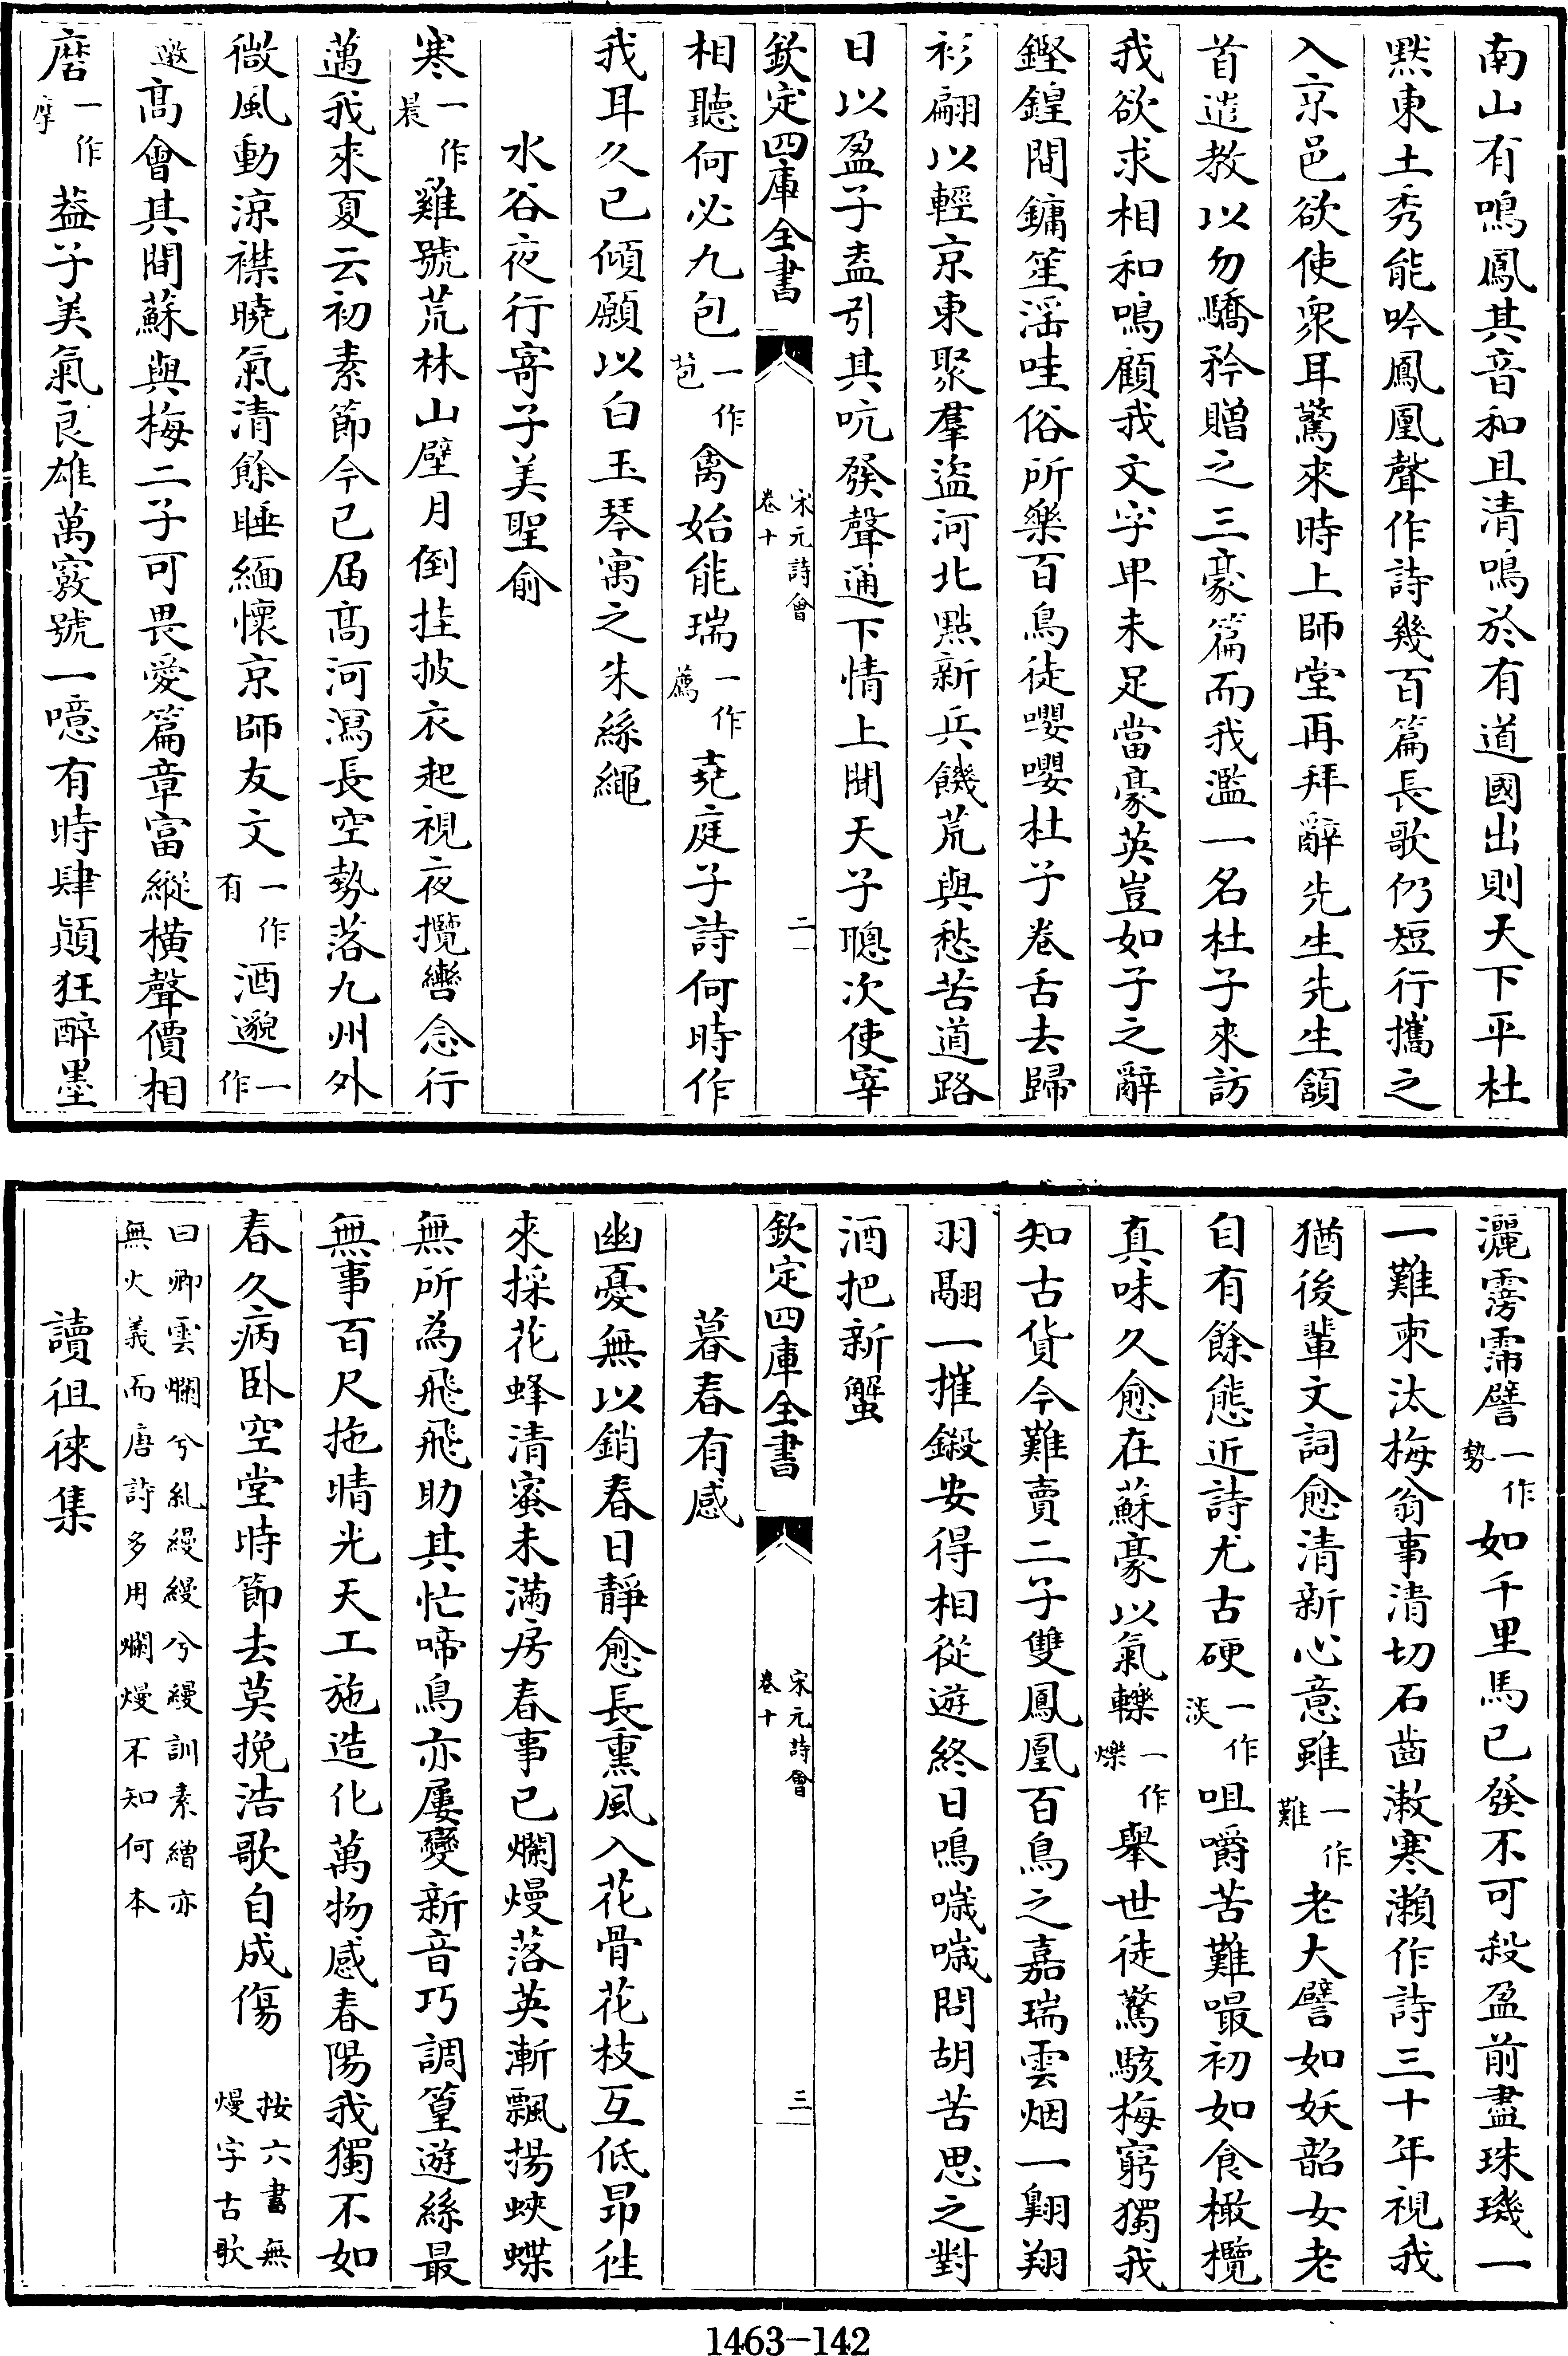 南山有鳴鳳其音和且清鳴於有道國出則天下平杜
黙東土秀能吟鳳凰聲作詩幾百篇長歌仍短行攜之
入京邑欲使衆耳驚來時上師堂再拜辭先生先生頷
首遣教以勿驕矜贈之三豪篇而我濫一名杜子來訪
我欲求相和鳴顧我文字卑未足當豪英豈如子之辭
鏗鍠間鏞笙淫哇俗所樂百鳥徒嚶嚶杜子卷舌去歸
衫翩以輕京東聚羣盜河北㸃新兵饑荒與愁苦道路
日以盈子盍引其吭發聲通下情上聞天子聰次使宰
欽定四庫全書 宋元詩會 卷十 二
相聽何必九包一作苞禽始能瑞一作薦堯庭子詩何時作
我耳久已傾願以白玉琴寫之朱絲繩
水谷夜行寄子美聖俞
寒一作晨雞號荒林山壁月倒挂披衣起視夜攬轡念行
邁我來夏云初素節今已届髙河瀉長空勢落九州外
微風動涼襟曉氣清餘睡緬懷京師友文一作有酒邈一作
邀髙會其間蘇與梅二子可畏愛篇章富縱横聲價相
磨一作摩葢子美氣良雄萬竅號一噫有時肆顛狂醉墨
灑霶霈譬一作勢如千里馬已發不可殺盈前盡珠璣一
一難柬汰梅翁事清切石齒漱寒瀨作詩三十年視我
猶後輩文詞愈清新心意雖一作難老大譬如妖韶女老
自有餘態近詩尤古硬一作淡咀嚼苦難嘬初如食橄欖
真味久愈在蘇豪以氣轢一作爍舉世徒驚駭梅窮獨我
知古貨今難賣二子雙鳳凰百鳥之嘉瑞雲烟一翺翔
羽翮一摧鎩安得相從遊終日鳴噦噦問胡苦思之對
酒把新蟹
欽定四庫全書 宋元詩會 卷十 三
暮春有感
幽憂無以銷春日靜愈長熏風入花骨花枝互低昻徃
來採花蜂清蜜未滿房春事已爛熳落英漸飄揚蛺蝶
無所為飛飛助其忙啼鳥亦屢變新音巧調篁遊絲最
無事百尺拖晴光天工施造化萬物感春陽我獨不如
春久病卧空堂時節去莫挽浩歌自成傷 按六書無熳字古歌
曰卿雲爛兮糺縵縵兮縵訓素繒亦無火義而唐詩多用爛熳不知何本
讀徂徠集
1463-142